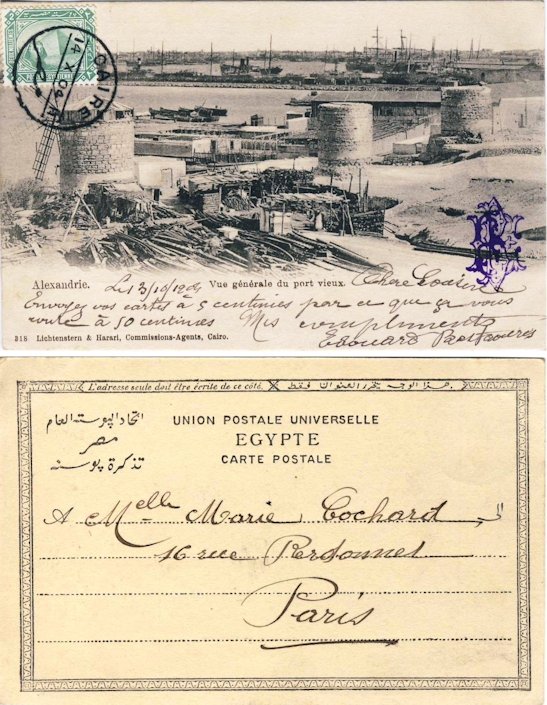 CAIRE
14 X 04
Alexandrie. Le 13/10/1904 Vue générale du port vieux. Chère Cousine
Envoyez vos cartes à 5 centimes par ce que ça vous
coute à 50 centimes Mis compliments
318 Lichtenstern & Harari, Commissions-Agents, Cairo. Edouard
L'adresse seule doit être écrite de ce côté. هذا الوجه يحرر العنوان فقط
اتحاد البوسته العام
مصر
تذكرة بوسته
UNION POSTALE UNIVERSELLE
EGYPTE
CARTE POSTALE
A Melle Marie Cochard الى
16 rue Perdonnet
Paris